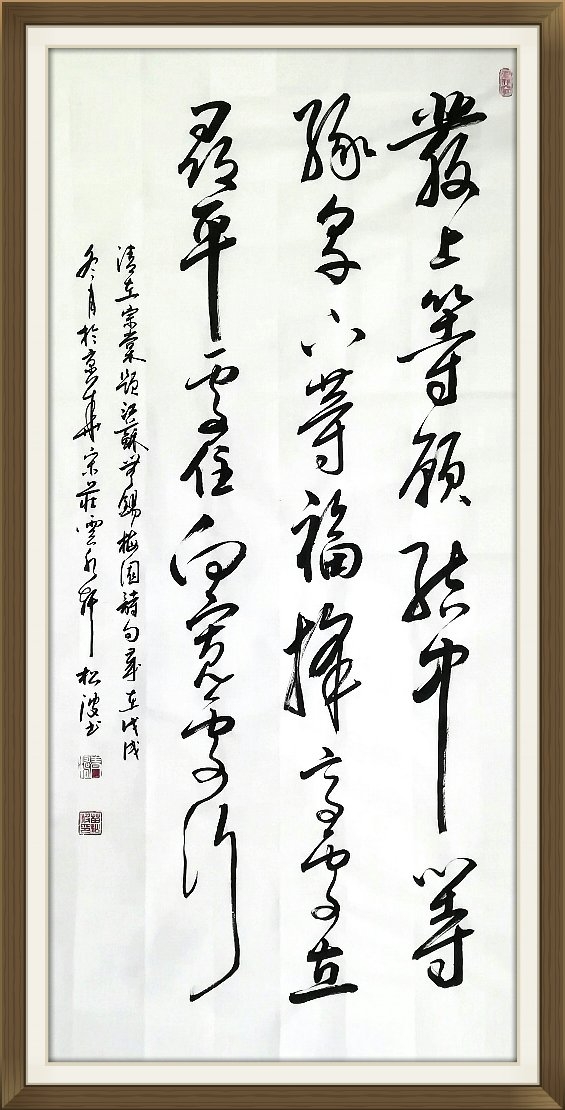 發上等願結中等
緣享下等福擇高處立
尋平處住向寬處行
清左宗棠題江蘇無錫梅園詩句歲在戊戌
冬月於京華宋莊雲水軒松波書